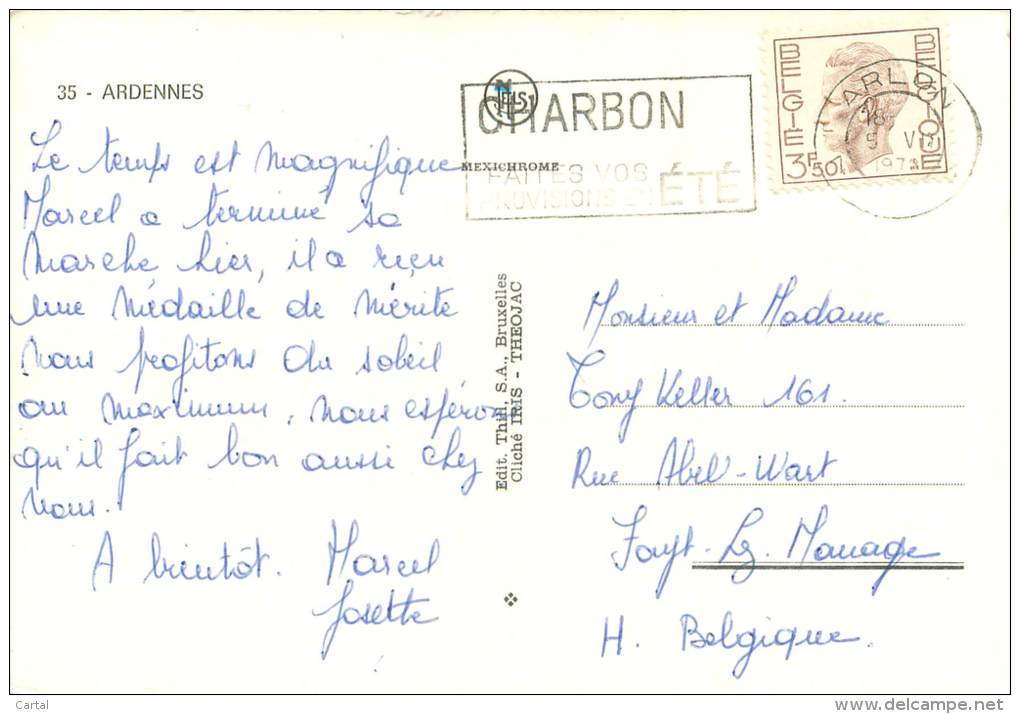 35 - ARDENNES
NELS
CHARBON
MEXICHROME
FAITES VOS
PROVISIONS ÉTÉ
BELGIE
BELGIQUE
3F50
ARLON
18
1973
Le temps est magnifique
Marcel a terminé sa
marche hier, il a reçu
une médaille de mérite
nous profitons du soleil
au maximum, nous espérons
qu'il fait bon aussi chez
vous.
A bientôt. Marcel
Josette
Edit. Thill, S.A., Bruxelles
Cliché IRIS - THEOJAC
Monsieur et Madame
Tony Keller 161.
Rue Abel-Wart
Fayt-Lz-Manage
H. Belgique.
Cartal
www.delcampe.net